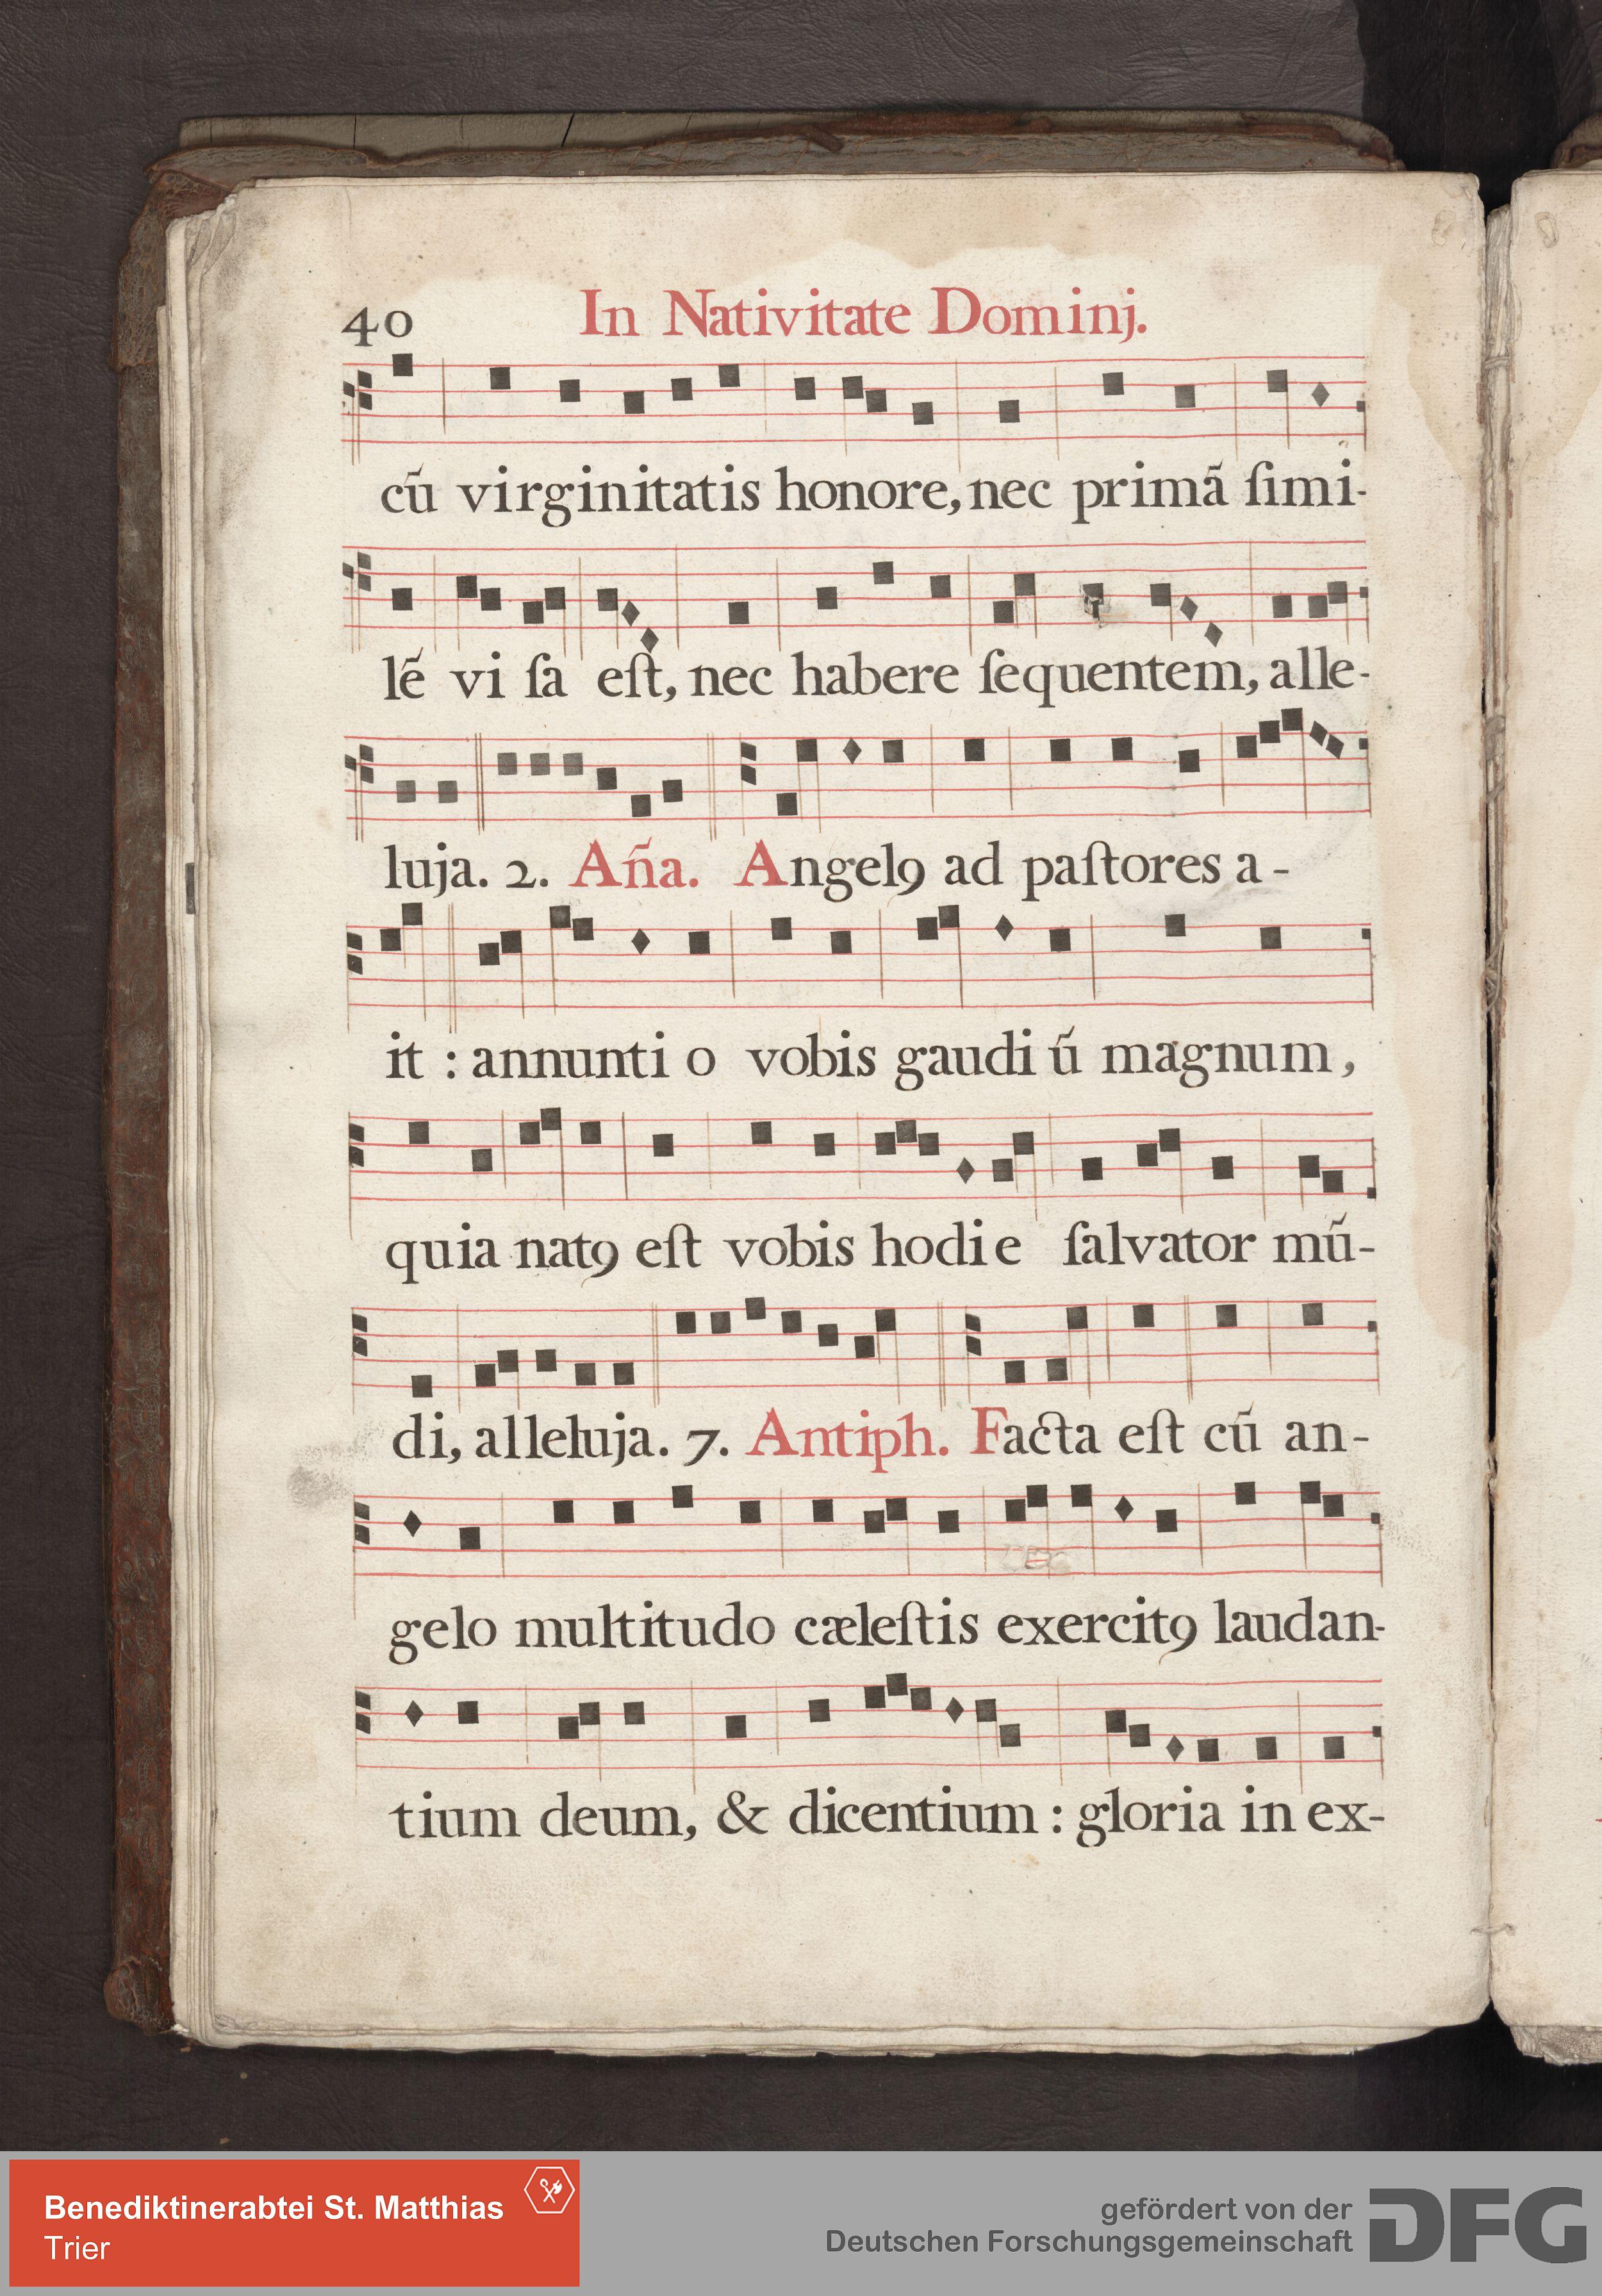 40 In Nativitate Dominj.
cū virginitatis honore, nec primã ſimi-
lẽ vi ſa eſt, nec habere ſequentem, alle-
luja. 2. Aña. Angelꝯ ad paſtores a-
it : annunti o vobis gaudi ũ magnum,
quia natꝯ eſt vobis hodie ſalvator mũ-
di, alleluja. 7. Antiph. Facta eſt cũ an-
gelo multitudo cæleſtis exercitꝯ laudan-
tium deum, & dicentium : gloria in ex-
Benediktinerabtei St. Matthias
Trier
gefördert von der
Deutschen Forschungsgemeinschaft
DFG